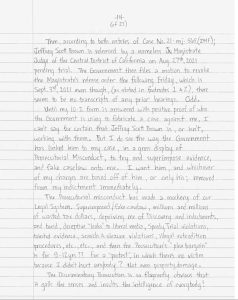 (of 21)
Then, according to both articles of Case No. 21-mj-
Jeffrey Scott Brown is referred by a nameless Magistrate
Judge of the Central District of California on Aug. 27th 2021
pending trial. The Government then files a motion to revoke
the Magistrate's release order the following Friday, which is
Sept. 3rd 2021 even though, (as stated in footnotes 1 & 2), there
seem to be no transcripts of any prior hearings. Odd.
Until my is answered with positive proof of who
the Government is using to fabricate a case against me, I
can't say for certain that Jeffrey Scott Brown is, or isn't,
working with them. But I do see the way the Government
has linked him to my case, in a gross display of
Prosecutorial Misconduct, to try and superimpose evidence,
and false caselaw onto me. I want him, and whichever
of my charges are based off of him, or only his, removed
from my indictment immediately.
The Prosecutorial misconduct has made a mockery of our
Legal System. Superimposed / fake caselaw, millions and millions
of wasted tax dollars, depriving me of Discovery and indictments,
and bond, deceptive 'leaks' to literal media, Speedy Trial violations,
planted evidence, search & seizure violations, illegal extradition
procedures, etc., etc., and then the Prosecution's 'plea bargain'
is for 9-12 yrs ?? For a "protest", in which there was victim
because I didn't hurt anybody? Not even property damage.
The Discriminatory Prosecution is so flagrantly obvious that
it galls the senses and insults the intelligence of everybody!